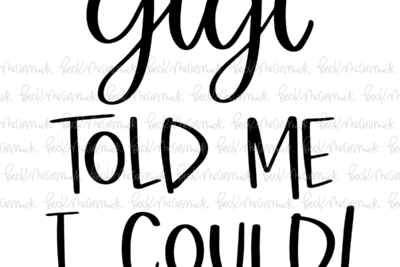 gigi
TOLD ME
I COULD!